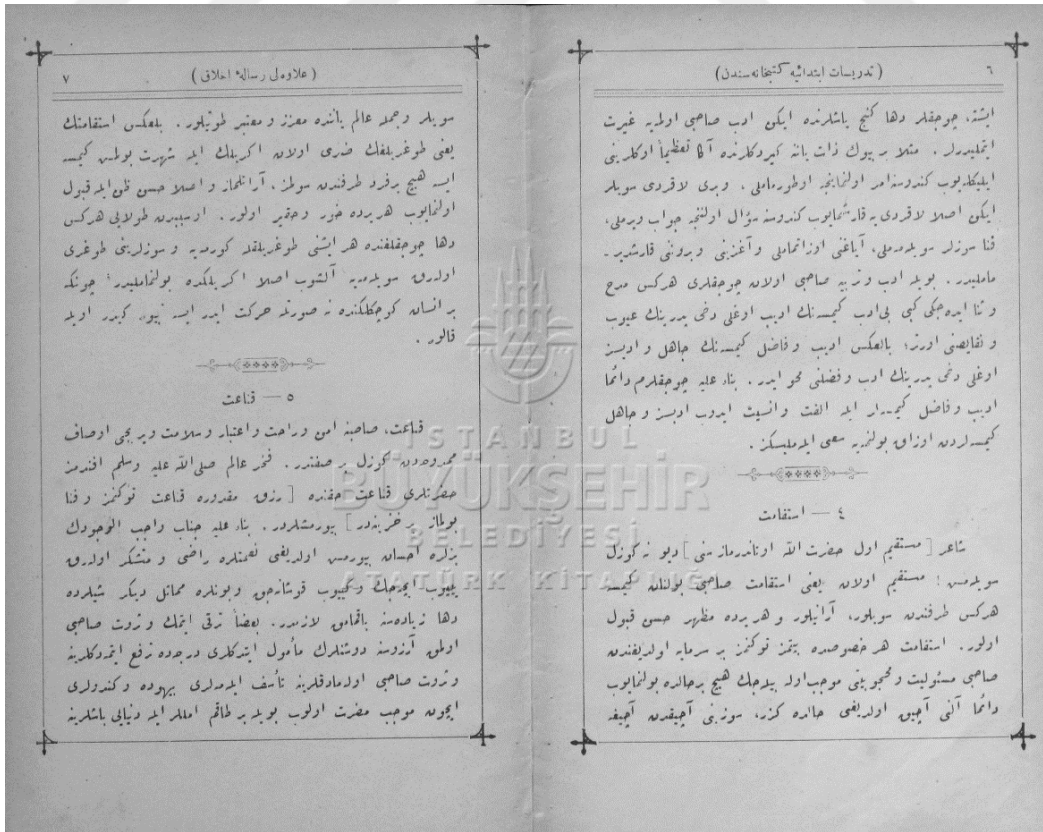 ٦ (تدریسات ابتدائیه كتبخانه سندن)
ایشته، چوجقلر دها كنج یاشلرنده ایكن ادب صاحبی اولمیه غیرت
ایتملیدرلر . مثلا بر بیوك ذات یانه كیردكلرنده آڭا تعظیماً اوڭلرینی
ایلیكلیوب كندوسنه امر اولنماینجه اوطورماملی ، وبری لاقردی سویلر
ایكن اصلا لاقردی یه قارشمایوب كندوسنه سؤال اولنجه جواب ویرملی،
فنا سوزلر سویلممه‌لی، آیاغنی اوزاتماملی و آغزینی وبرونی قارشدیر ـ
ماملیدر . بویله ادب وتربیه صاحبی اولان چوجقلری هركس مدح
و ثنا ایده جكی كبی بی ادب كیمسه نك ادیب اوغلی دخی پدرینك عیوب
و نقایصنی اورتر؛ بالعكس ادیب وفاضل كیمسه نك جاهل وادبسز
اوغلی دخی پدرینك ادب وفضلنی محو ایدر . بناءً علیه چوجقلرم دائما
ادیب وفاضل كیمسه لر ایله الفت وانسیت ایدوب ادبسز وجاهل
كیمسه لردن اوزاق بولنمه یه سعی ایلملیسكز .
٤ — استقامت
شاعر [ مستقیم اول حضرت الله اوتاندرماز سنی ] دیو نه كوزل
سویله مش ؛ مستقیم اولان یعنی استقامت صاحبی بولنان كیمسه
هركس طرفندن سویلور، آرانیلور و هر یرده مظهر حسن قبول
اولور . استقامت هر خصوصده بتمز توكنمز بر سرمایه اولدیغندن
صاحبی مسئولیت و محجوبیتی موجب اوله بیله جك هیچ بر حالده بولنمایوب
دائما آلنی آچیق اولدیغی حالده كزر، سوزینی آچیقدن آچیغه
(علاوه لی رساله ٔ اخلاق) ٧
سویلر وجمله عالم یاننده معزز و معتبر طوتیلور . بلعكس استقامتك
یعنی طوغریلغك ضدی اولان اكریلك ایله شهرت بولمش كیمسه
ایسه هیچ بر فرد طرفندن سولمز ، آرانلماز و اصلا حسن ظن ایله قبول
اولنمایوب هر یرده خور و حقیر اولور . اوسببدن طولایی هركس
دها چوجقلغنده هر ایشنی طوغریلقله كورمیه و سوزلرینی طوغری
اولەرق سویلمه یه آلشوب اصلا اكریلكده بولنماملیدر؛ چونكه
بر انسان كوچكلكنده نه صورتله حركت ایدر ایسه بیوك كیدر اویله
قالور .
٥ — قناعت
قناعت، صاحبنه امن وراحت واعتبار وسلامت ویریجی اوصاف
ممدوحه دن كوزل بر صفتدر . فخر عالم صلی الله علیه وسلم افندمز
حضرتلری قناعت حقنده [ رزق مقدوره قناعت توكنمز وفنا
بولماز بر خزینه در ] بیورمشلردر . بناءً علیه جناب واجب الوجودك
بزلره احسان بیورمش اولدیغی نعمتلره راضی و متشكر اولەرق
ییوب ایچه جك وكییوب قوشانه جق وبونلره مماثل دیكر شیلرده
دها زیاده سنه باقمامق لازمدر . بعضاً ترقی ایتمك و ثروت صاحبی
اولمق آرزوسنه دوشنلرك مأمول ایتدكلری درجه ده ترفع ایتمدكلرینه
و ثروت صاحبی اوله مادقلرینه تأسف ایلمه لری بیهوده و كندولری
ایچون موجب مضرت اولوب بویله بر طاقم امللر ایله دنیایی باشلرینه
İSTANBUL
BÜYÜKŞEHİR
BELEDİYESİ
ATATÜRK KİTAPLIĞI